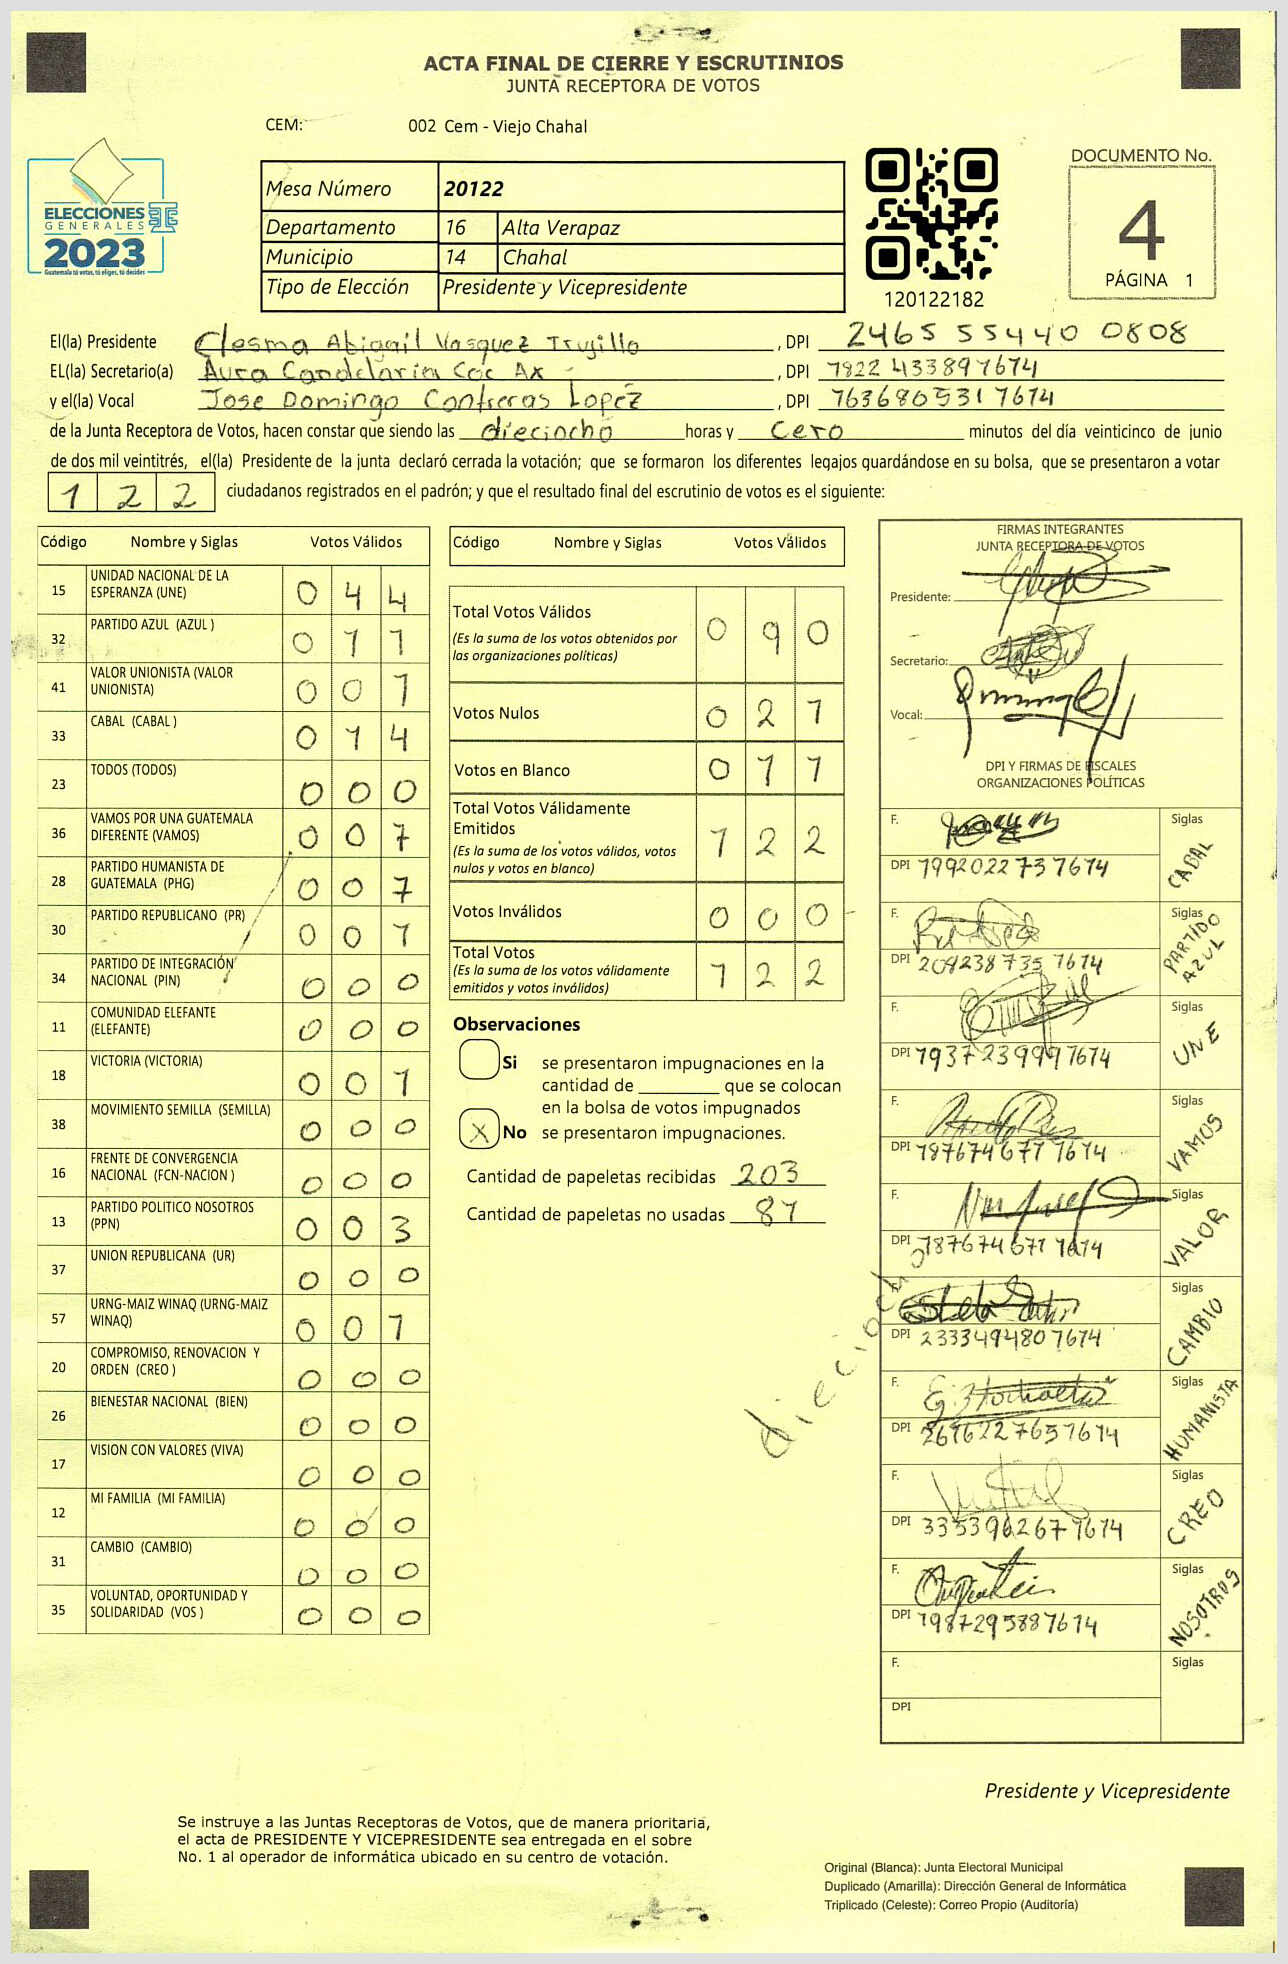 ACTA FINAL DE CIERRE Y ESCRUTINIOS
JUNTA RECEPTORA DE VOTOS
CEM: 002 Cem - Viejo Chahal
ELECCIONES
GENERALES
2023
Guatemala tú votas, tú eliges, tú decides
Mesa Número 20122
Departamento 16 Alta Verapaz
Municipio 14 Chahal
Tipo de Elección Presidente y Vicepresidente
120122182
DOCUMENTO No.
4
PÁGINA 1
El(la) Presidente Clesma Abigail Vasquez Trujillo, DPI 2465 55440 0808
EL(la) Secretario(a) Aura Candelaria Coc Ax, DPI 7822 433897674
y el(la) Vocal Jose Domingo Contreras Lopez, DPI 7636805317674
de la Junta Receptora de Votos, hacen constar que siendo las diecincho horas y cero minutos del día veinticinco de junio
de dos mil veintitrés, el(la) Presidente de la junta declaró cerrada la votación; que se formaron los diferentes legajos guardándose en su bolsa, que se presentaron a votar
122 ciudadanos registrados en el padrón; y que el resultado final del escrutinio de votos es el siguiente:
Código Nombre y Siglas Votos Válidos
15 UNIDAD NACIONAL DE LA ESPERANZA (UNE) 044
32 PARTIDO AZUL (AZUL ) 011
41 VALOR UNIONISTA (VALOR UNIONISTA) 001
33 CABAL (CABAL ) 014
23 TODOS (TODOS) 000
36 VAMOS POR UNA GUATEMALA DIFERENTE (VAMOS) 007
28 PARTIDO HUMANISTA DE GUATEMALA (PHG) 007
30 PARTIDO REPUBLICANO (PR) 001
34 PARTIDO DE INTEGRACIÓN NACIONAL (PIN) 000
11 COMUNIDAD ELEFANTE (ELEFANTE) 000
18 VICTORIA (VICTORIA) 001
38 MOVIMIENTO SEMILLA (SEMILLA) 000
16 FRENTE DE CONVERGENCIA NACIONAL (FCN-NACION ) 000
13 PARTIDO POLITICO NOSOTROS (PPN) 003
37 UNION REPUBLICANA (UR) 000
57 URNG-MAIZ WINAQ (URNG-MAIZ WINAQ) 001
20 COMPROMISO, RENOVACION Y ORDEN (CREO ) 000
26 BIENESTAR NACIONAL (BIEN) 000
17 VISION CON VALORES (VIVA) 000
12 MI FAMILIA (MI FAMILIA) 000
31 CAMBIO (CAMBIO) 000
35 VOLUNTAD, OPORTUNIDAD Y SOLIDARIDAD (VOS ) 000
Código Nombre y Siglas Votos Válidos
Total Votos Válidos 090
(Es la suma de los votos obtenidos por
las organizaciones políticas)
Votos Nulos 021
Votos en Blanco 011
Total Votos Válidamente
Emitidos 122
(Es la suma de los votos válidos, votos
nulos y votos en blanco)
Votos Inválidos 000
Total Votos 122
(Es la suma de los votos válidamente
emitidos y votos inválidos)
Observaciones
Si se presentaron impugnaciones en la
cantidad de ________ que se colocan
en la bolsa de votos impugnados
X No se presentaron impugnaciones.
Cantidad de papeletas recibidas 203
Cantidad de papeletas no usadas 81
dieciocho
FIRMAS INTEGRANTES
JUNTA RECEPTORA DE VOTOS
Presidente:
Secretario:
Vocal:
DPI Y FIRMAS DE FISCALES
ORGANIZACIONES POLÍTICAS
F. Siglas CABAL
DPI 1992022737674
F. Siglas PARTIDO AZUL
DPI 209238735 7674
F. Siglas UNE
DPI 1937239997674
F. Siglas VAMOS
DPI 787674677 7674
F. Siglas VALOR
DPI 787674677 7674
F. Siglas CAMBIO
DPI 2333494807674
F. Siglas HUMANISTA
DPI 2616227657674
F. Siglas CREO
DPI 3353962677674
F. Siglas NOSOTROS
DPI 1987295887674
F. Siglas
DPI
Presidente y Vicepresidente
Se instruye a las Juntas Receptoras de Votos, que de manera prioritaria,
el acta de PRESIDENTE Y VICEPRESIDENTE sea entregada en el sobre
No. 1 al operador de informática ubicado en su centro de votación.
Original (Blanca): Junta Electoral Municipal
Duplicado (Amarilla): Dirección General de Informática
Triplicado (Celeste): Correo Propio (Auditoría)